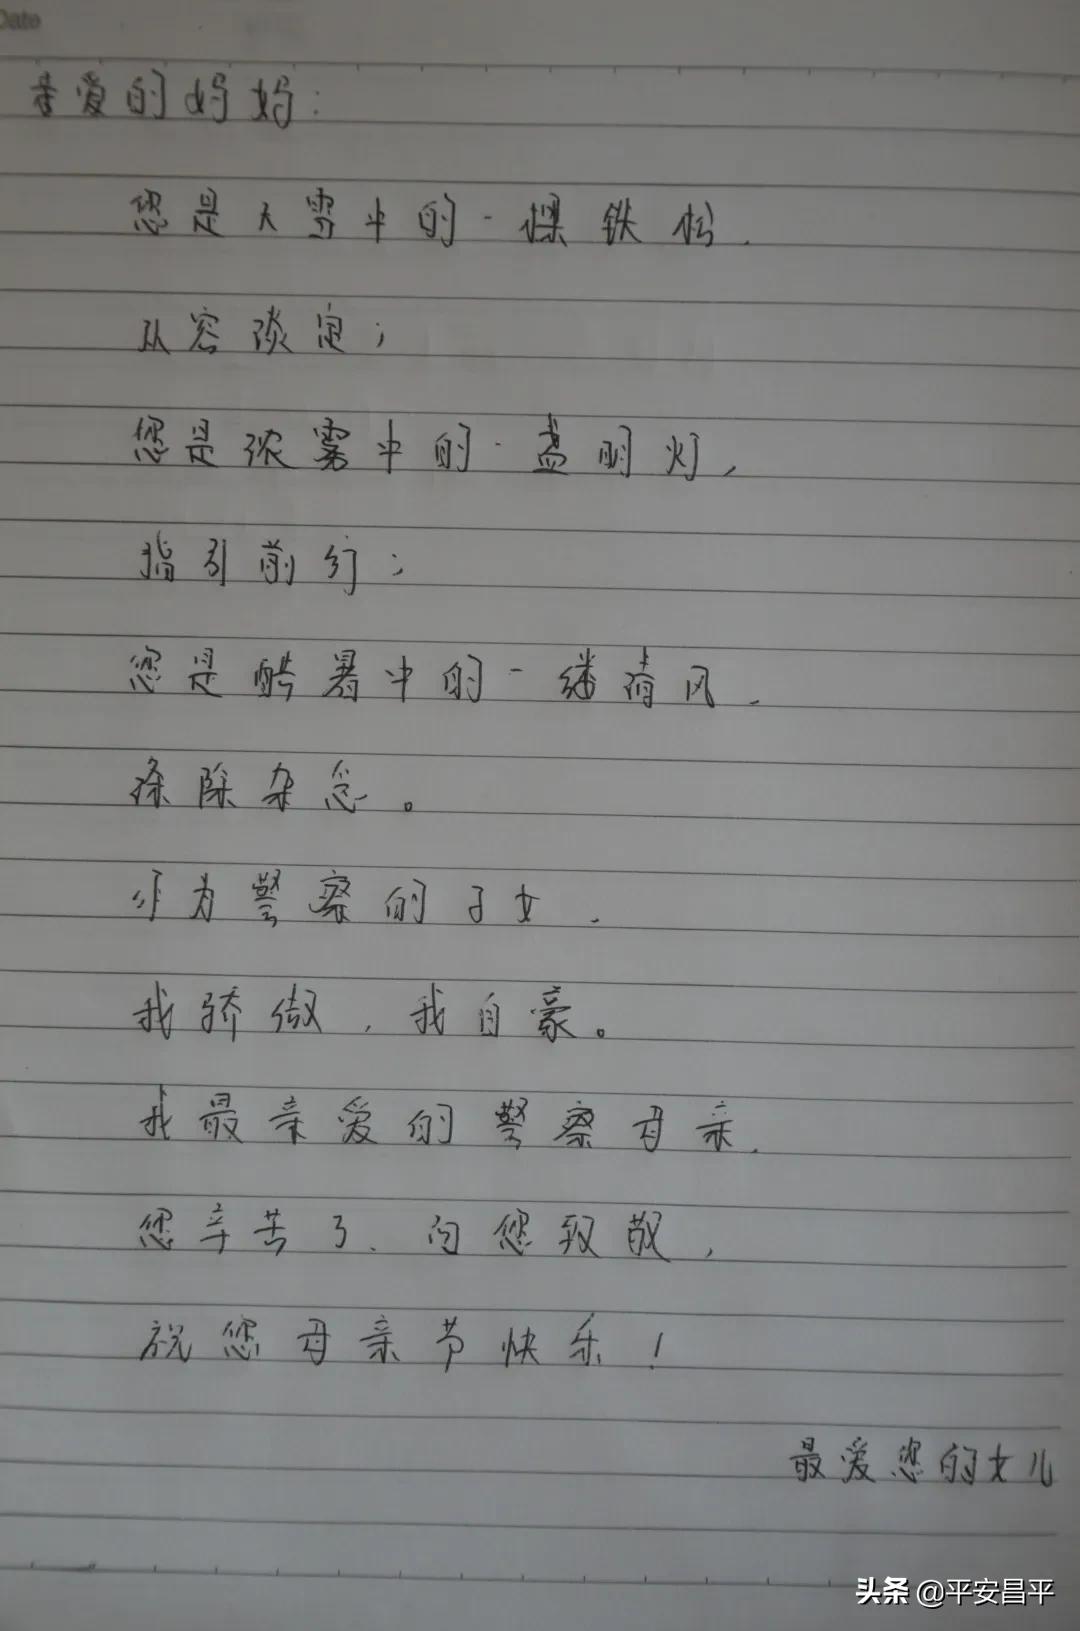 Date
亲爱的妈妈：
您是大雪中的一棵铁松，
从容淡定；
您是浓雾中的一盏明灯，
指引前行；
您是酷暑中的一缕清风，
涤除杂念。
作为警察的子女，
我骄傲，我自豪。
我最亲爱的警察母亲，
您辛苦了，向您致敬，
祝您母亲节快乐！
最爱您的女儿
头条 @平安昌平